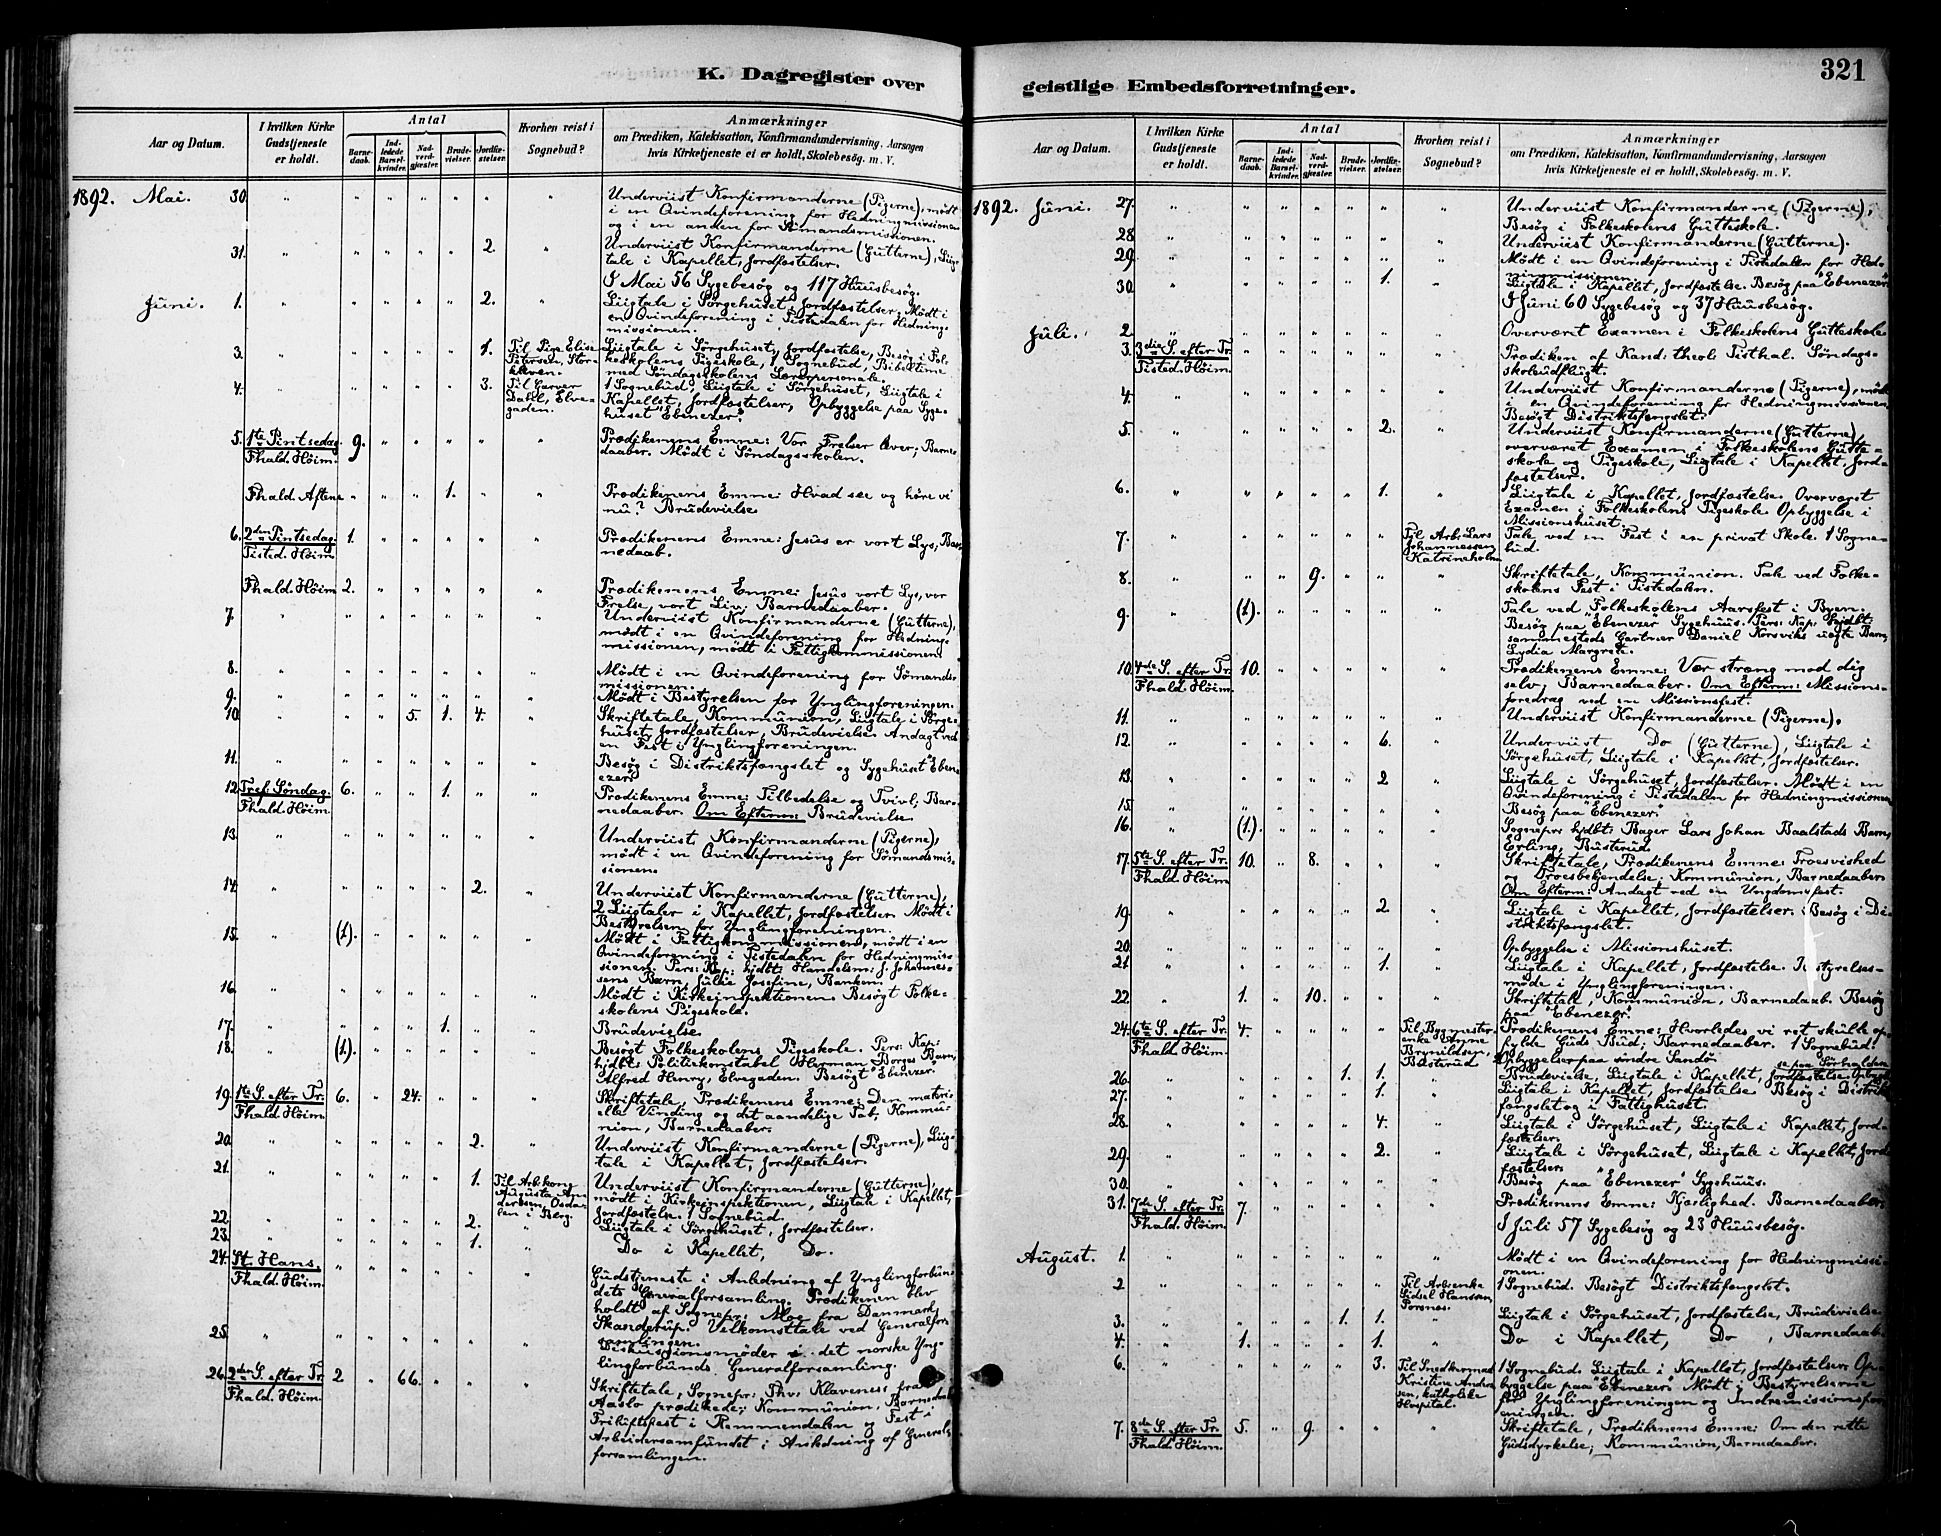 K. Dagregister over
Aar og Datum.
I hvilken Kirke Gudstjeneste er holdt.
Antal
Barnedaab.
Indledede Barselkvinder.
Nadverdgjæster.
Brudevielser.
Jordfæstelser.
Hvorhen reist i Sognebud?
Anmærkninger
om Prædiken, Katekisation, Konfirmandundervisning, Aarsagen
hvis Kirketjeneste ei er holdt, Skolebesøg. m. V.
1892. Mai. 30. Underviist Konfirmanderne (Pigerne), mødt
i en Qvindeforening for Hedningmissionen
og i en anden for Sømandsmissionen.
31. 2. Underviist Konfirmanderne (Gutterne), Liig-
tale i Kapellet, Jordfæstelser.
I Mai 56 Sygebesøg og 117 Huusbesøg.
Juni. 1. 2. Liigtale i Sørgehuset, Jordfæstelser, Mødt i
en Qvindeforening i Tistedalen for Hedning-
missionen.
3. 1. Til Pige Elise Liigtale i Sørgehuset, Jordfæstelse, Besøg i Fol-
Petersen, Stor- keskolens Pigeskole, 1 Sognebud, Bibeltime
med Søndagsskolens Lærerpersonale.
4. 3. Til Garver 1 Sognebud, Liigtale i Sørgehuset, Liigtale i
Dahl, Elve- Kapellet, Jordfæstelser, Opbyggelse paa Syge-
gaden. huset "Ebenezer".
5. 1ste Pintsedag 9. Prædikenens Emne: Vor Frelser lever; Barne-
Fhald. Høim. daaber. Mødt i Søndagsskolen.
Fhald. Aftens. 1. Prædikenens Emne: Hvad see og høre vi
nu? Brudevielse.
6. 2den Pintsedag 1. Prædikenens Emne: Jesus er vort Lys; Bar-
Tisted. Høim. nedaab.
Fhald. Høim. 2. Prædikenens Emne: Jesus vort Lys, vor
Frelse, vort Liv; Barnedaaber.
7. Underviist Konfirmanderne (Gutterne),
mødt i en Qvindeforening for Hedning-
missionen, mødt i Fattigkommissionen.
8. Mødt i en Qvindeforening for Sømands-
missionen.
9. Mødt i Bestyrelsen for Ynglingforeningen.
10. 5. 1. 4. Skriftetale, Kommunion, Liigtale i Sørge-
huset, Jordfæstelser, Brudevielse. Andagt ved
en Fest i Ynglingforeningen.
11. Besøg i Distriktsfængslet og Sygehuset "Eben-
ezer".
12. Tref. Søndag 6. 1. Prædikenens Emne: Tilbedelse og Tvivl; Bar-
Fhald. Høim. nedaaber. Om Efterm: Brudevielse.
13. Underviist Konfirmanderne (Pigerne),
mødt i en Qvindeforening for Sømandsmis-
sionen.
14. 2. Underviist Konfirmanderne (Gutterne),
2 Liigtaler i Kapellet, Jordfæstelser. Mødt i
Bestyrelsen for Ynglingforeningen.
15. (1). Mødt i Fattigkommissionen, mødt i en
Qvindeforening i Tistedalen for Hedningmis-
sionen. Pers: Kap: hjdbt: Handelsm: J. Johannes-
sens Barn, Julie Josefine, Banken.
16. Mødt i Kirkeinspektionen. Besøgt Folke-
skolens Pigeskole.
17. 1. Brudevielse.
18. (1). Besøgt Folkeskolens Pigeskole. Pers: Kap:
hjdbt: Politikonstabel Herman Borges Barn,
Alfred Henry, Elvegaden. Besøgt "Ebenezer".
19. 1ste S. efter Tr. 6. 24. Skriftetale, Prædikenens Emne: Den materi-
Fhald. Høim. elle Vinding og det aandelige Tab; Kommu-
nion, Barnedaaber.
20. 2. Underviist Konfirmanderne (Pigerne), Liig-
tale i Kapellet, Jordfæstelser.
21. 1. Til Arbkone Underviist Konfirmanderne (Gutterne),
Augusta An- mødt i Kirkeinspektionen, Liigtale i Kapellet,
dersen, Osda- Jordfæstelse. 1 Sognebud.
len i Berg.
22. 2. Liigtale i Sørgehuset, Jordfæstelser.
23. 1. Do i Kapellet, Do.
24. St. Hans. Gudstjeneste i Anledning af Ynglingforbun-
Fhald. Høim. dets Generalforsamling. Prædikenen blev
holdt af Sognepr: Moe fra Danmark,
Skanderup. Velkomsttale ved Generalfor-
samlingen.
25. Diskussionsmøder i det norske Yng-
lingforbunds Generalforsamling.
26. 2den S. efter Tr. 2 66. Skriftetale, Sognepr: Thv. Klaveness fra
Fhald. Høim. Aaslo prædikede; Kommunion, Barnedaab.
Friluftsfest i Remmendalen og Fest i
Arbeidersamfundet i Anledning af General-
forsamlingen.
geistlige Embedsforretninger.
321
Aar og Datum.
I hvilken Kirke Gudstjeneste er holdt.
Antal
Barnedaab.
Indledede Barselkvinder.
Nadverdgjæster.
Brudevielser.
Jordfæstelser.
Hvorhen reist i Sognebud?
Anmærkninger
om Prædiken, Katekisation, Konfirmandundervisning, Aarsagen
hvis Kirketjeneste ei er holdt, Skolebesøg. m. V.
1892. Juni. 27. Underviist Konfirmanderne (Pigerne),
Besøg i Folkeskolens Gutteskole.
28. Underviist Konfirmanderne (Gutterne).
29. Mødt i en Qvindeforening i Tistedalen for Hed-
ningmissionen.
30. 1. Liigtale i Kapellet, Jordfæstelse. Besøg paa "Ebenezer".
I Juni 60 Sygebesøg og 37 Huusbesøg.
Juli. 2. Overværet Examen i Folkeskolens Gutteskole.
3. 3die S. efter Tr. Prædiken af Kand: theol: Tisthal. Søndags-
Tisted. Høim. skoleudflugt.
4. Underviist Konfirmanderne (Pigerne), mødt
i en Qvindeforening for Hedningmissionen.
Besøgt Distriktsfængslet.
5. 2. Underviist Konfirmanderne (Gutterne),
overværet Examen i Folkeskolens Gutte-
skole og Pigeskole, Liigtale i Kapellet, Jord-
fæstelser.
6. 1. Liigtale i Kapellet, Jordfæstelse. Overværet
Examen i Folkeskolens Pigeskole. Opbyggelse i
Missionshuset.
7. Til Arb. Lars Tale ved en Fest i en privat Skole. 1 Sogne-
Johannessen, bud.
Katrineholm
8. 9. Skriftetale, Kommunion. Tale ved Folke-
skolens Fest i Tistedalen.
9. (1). Tale ved Folkeskolens Aarsfest i Byen.
Besøg paa "Ebenezer" Sygehuus. Pers: Kap: hjdbt:
sammesteds Gartner Daniel Korsviks uægte Barn,
Lydia Margrete.
10. 4de S. efter Tr. 10. Prædikenens Emne: Vær streng mod dig
Fhald. Høim. selv, Barnedaaber. Om Efterm: Missions-
foredrag ved en Missionsfest.
11. Underviist Konfirmanderne (Pigerne).
12. 6. Underviist Do (Gutterne), Liigtale i
Sørgehuset, Liigtale i Kapellet, Jordfæstelser.
13. 2 Liigtale i Sørgehuset, Jordfæstelser. Mødt i en
Qvindeforening i Tistedalen for Hedningmissionen.
15. Besøg paa "Ebenezer".
16. (1.). Sognepr: hjdbt: Bager Lars Johan Baalstads Barn,
Erling, Busterud.
17. 5te S. efter Tr. 10. 8. Skriftetale, Prædikenens Emne: Troesvished
Fhald. Høim. og Troesbekjendelse. Kommunion, Barnedaaber.
Om Efterm: Andagt ved en Ungdomsfest.
19. 2. Liigtale i Kapellet, Jordfæstelser. Besøg i Di-
striktsfængslet.
20. Opbyggelse i Missionshuset.
21. 1. Liigtale i Kapellet, Jordfæstelse. Bestyrelses-
møde i Ynglingforeningen.
22. 1. 10. Skriftetale, Kommunion, Barnedaab. Besøg
paa "Ebenezer".
24. 6te S. efter Tr. 4. Til Bygmester- Prædikenens Emne: Hvorledes vi ret skulle op-
Fhald. Høim. enke Anne fylde Guds Bud; Barnedaaber. 1 Sognebud.
Brynildsen, Opbyggelser paa søndre Sandø
Busterud
26. 1. 1. Brudevielse, Liigtale i Kapellet, Jordfæstelse.
27. 1. Liigtale i Kapellet, Jordfæstelse. Besøg i Distrikts-
fængslet og i Fattighuset.
28. 4. Liigtale i Sørgehuset, Liigtale i Kapellet, Jord-
fæstelser.
29. 2. Liigtale i Sørgehuset, Liigtale i Kapellet, Jord-
fæstelser.
30. Besøg paa "Ebenezer" Sygehuus.
31. 7de S. efter Tr. 7. Prædikenens Emne: Kjærlighed. Barnedaaber.
Fhald. Høim. I Juli 57 Sygebesøg og 23 Huusbesøg.
August. 1. Mødt i en Qvindeforening for Hedningmissi-
onen.
2 Til Arb.enke 1 Sognebud. Besøgt Distriktsfængslet.
Lidsel Hanssen,
Porsnæs.
3. 1. 1. Liigtale i Sørgehuset, Jordfæstelse, Brudevielse.
4. 1. 1. Do i Kapellet, Do, Barnedaab.
6. 3. Til Snedkermad 1 Sognebud. Liigtale i Kapellet, Jordfæstelser. Op-
Kristine Andre- byggelse paa "Ebenezer". Mødt i Bestyrelserne
sen, katholske for Ynglingforeningen og Indremissionsfor-
Hospital. eningen.
7. 8de S. efter Tr. 5. 9. Skriftetale, Prædikenens Emne: Om den rette
Fhald. Høim. Gudsdyrkelse; Kommunion, Barnedaaber.